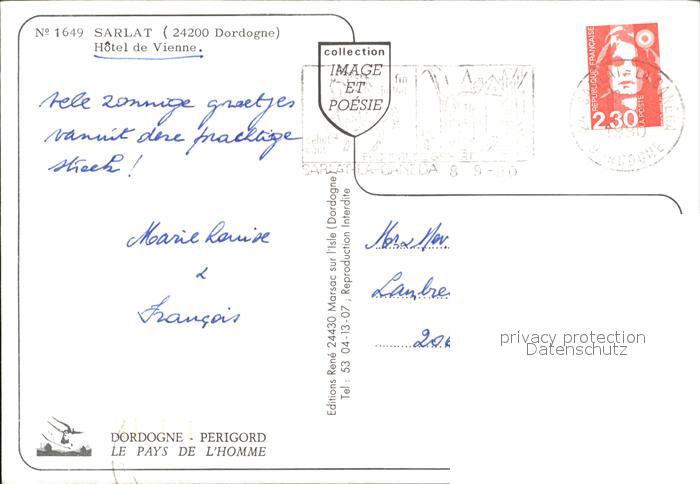 Nº 1649 SARLAT ( 24200 Dordogne)
Hôtel de Vienne.
collection
IMAGE
ET
POÉSIE
REPUBLIQUE FRANÇAISE
2.30
LA POSTE
SARLAT-LA-CANEDA 8 9 -90
vele zonnige groetjes
vanuit deze prachtige
streek !
Marie Louise
&
François
Editions René 24430 Marsac sur l'Isle (Dordogne)
Tel : 53 04-13-07 ; Reproduction Interdite
Mr &
Lambre
200
privacy protection
Datenschutz
DORDOGNE - PERIGORD
LE PAYS DE L'HOMME